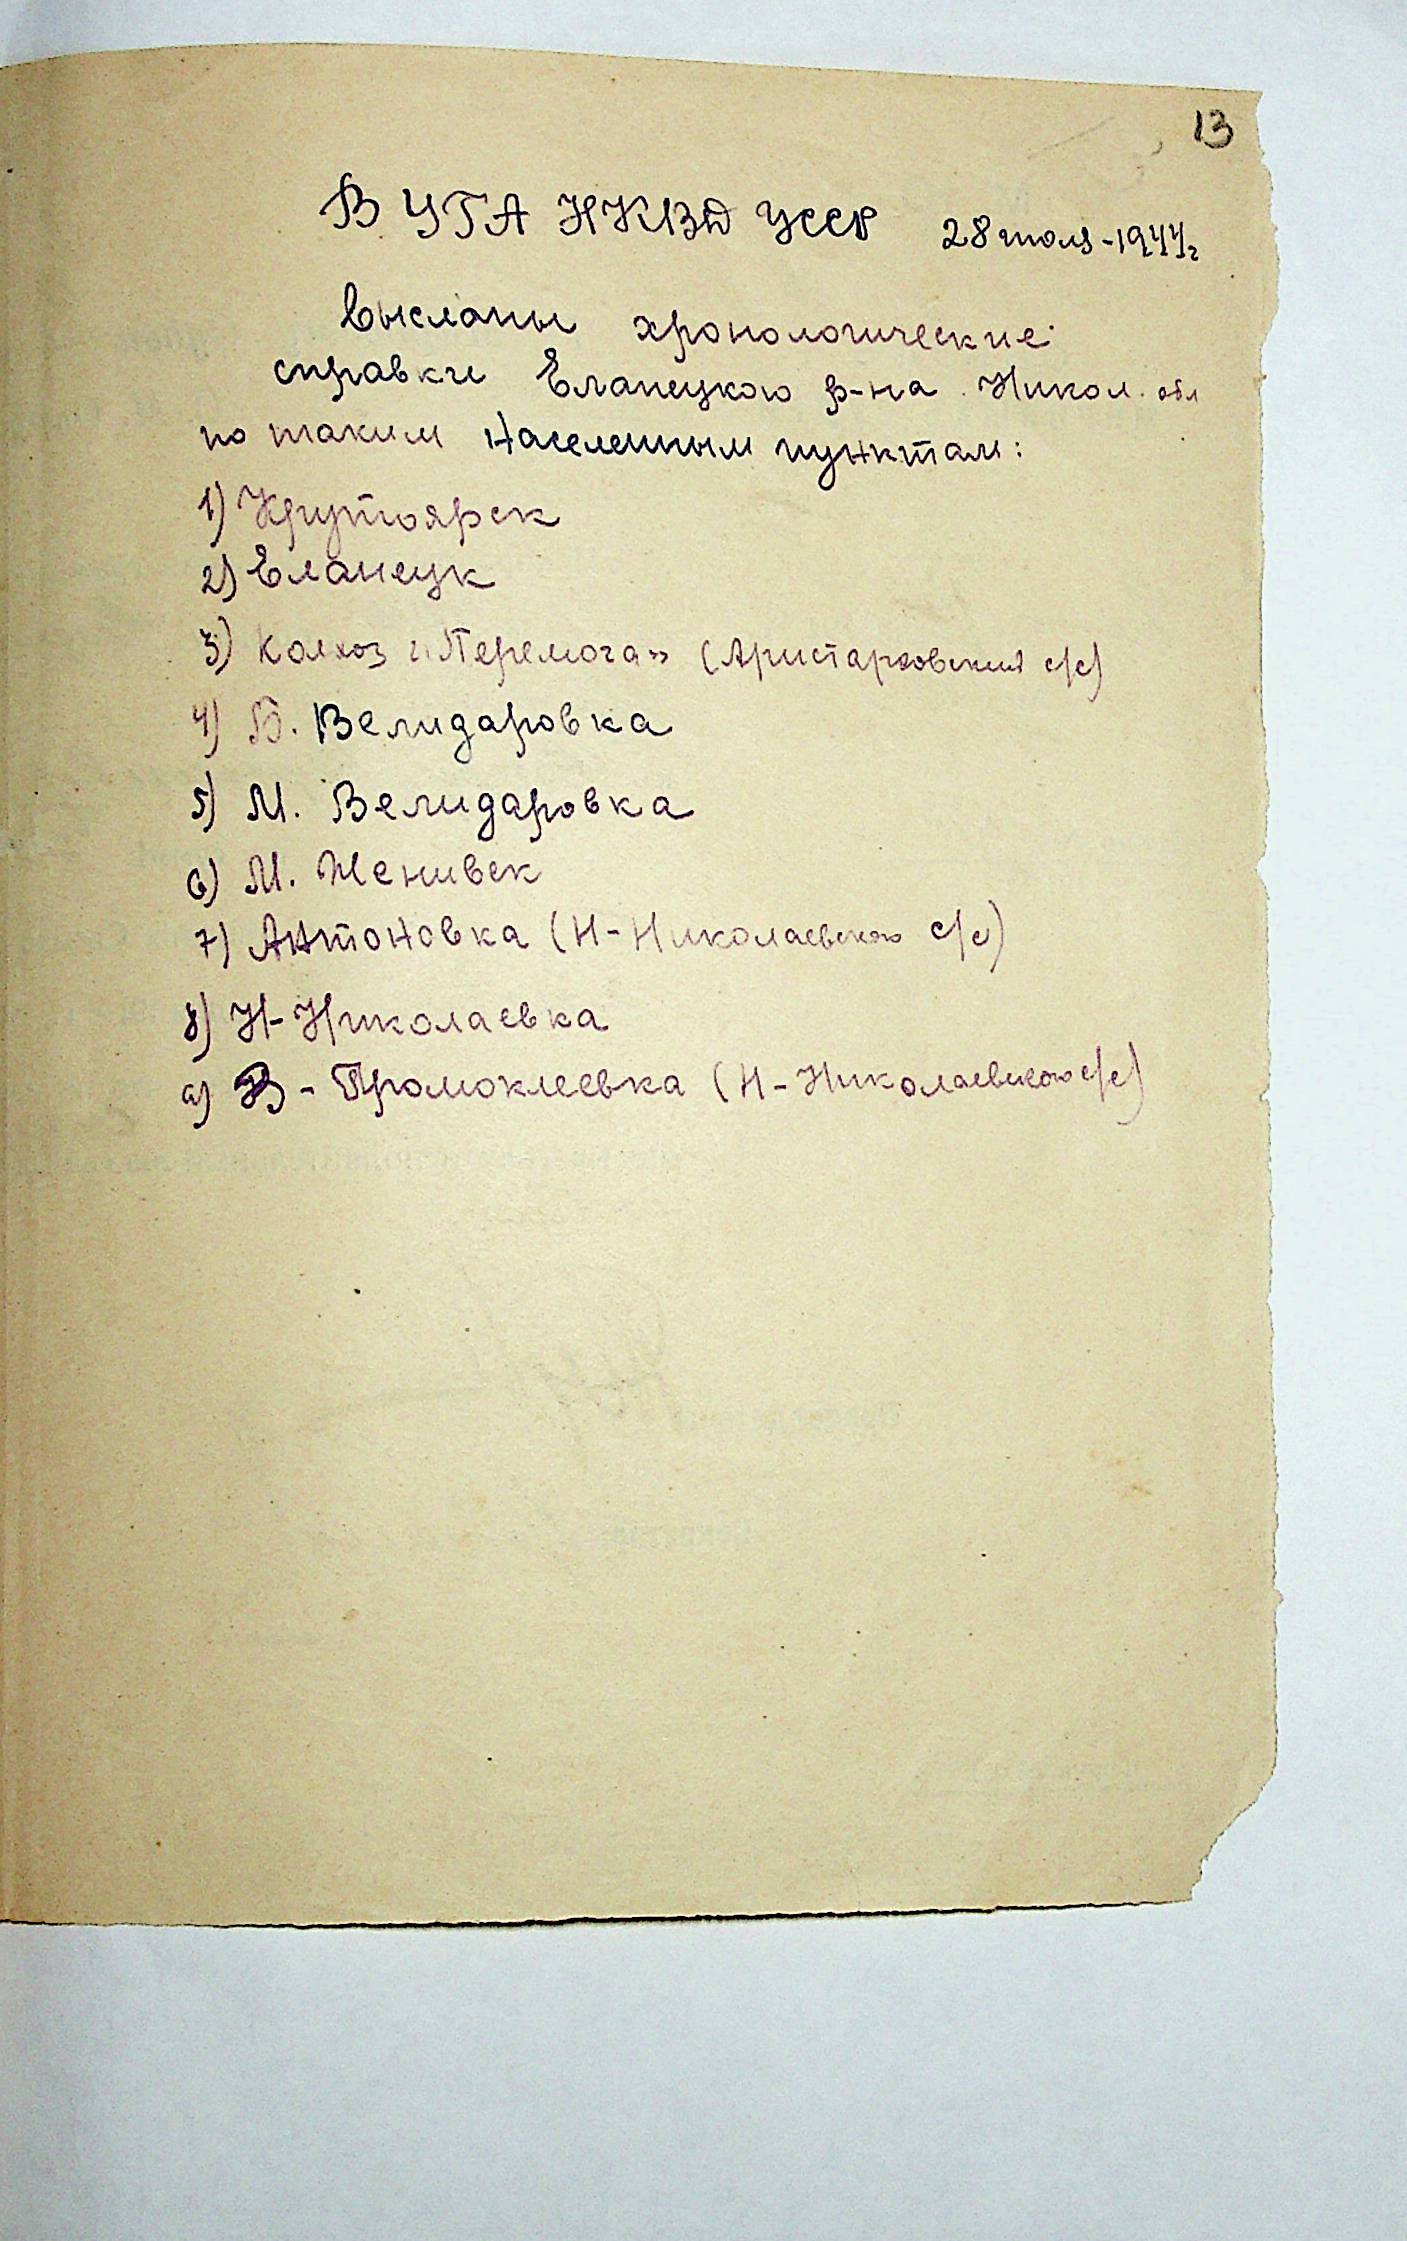 13
В УГА НКВД УССР 28 июля-1944г
Высланы хронологические
справки Еланецкого р-на Никол. обл
по таким населенным пунктам:
1) Крутоярск
2) Еланецк
3) Колхоз „Перемога" (Аристарховский с/с)
4) Б. Велидаровка
5) М. Велидаровка
6) М. Женивек
7) Антоновка (Н-Николаевского с/с)
8) Н-Николаевка
9) В - Промоклеевка (Н-Николаевского с/с)